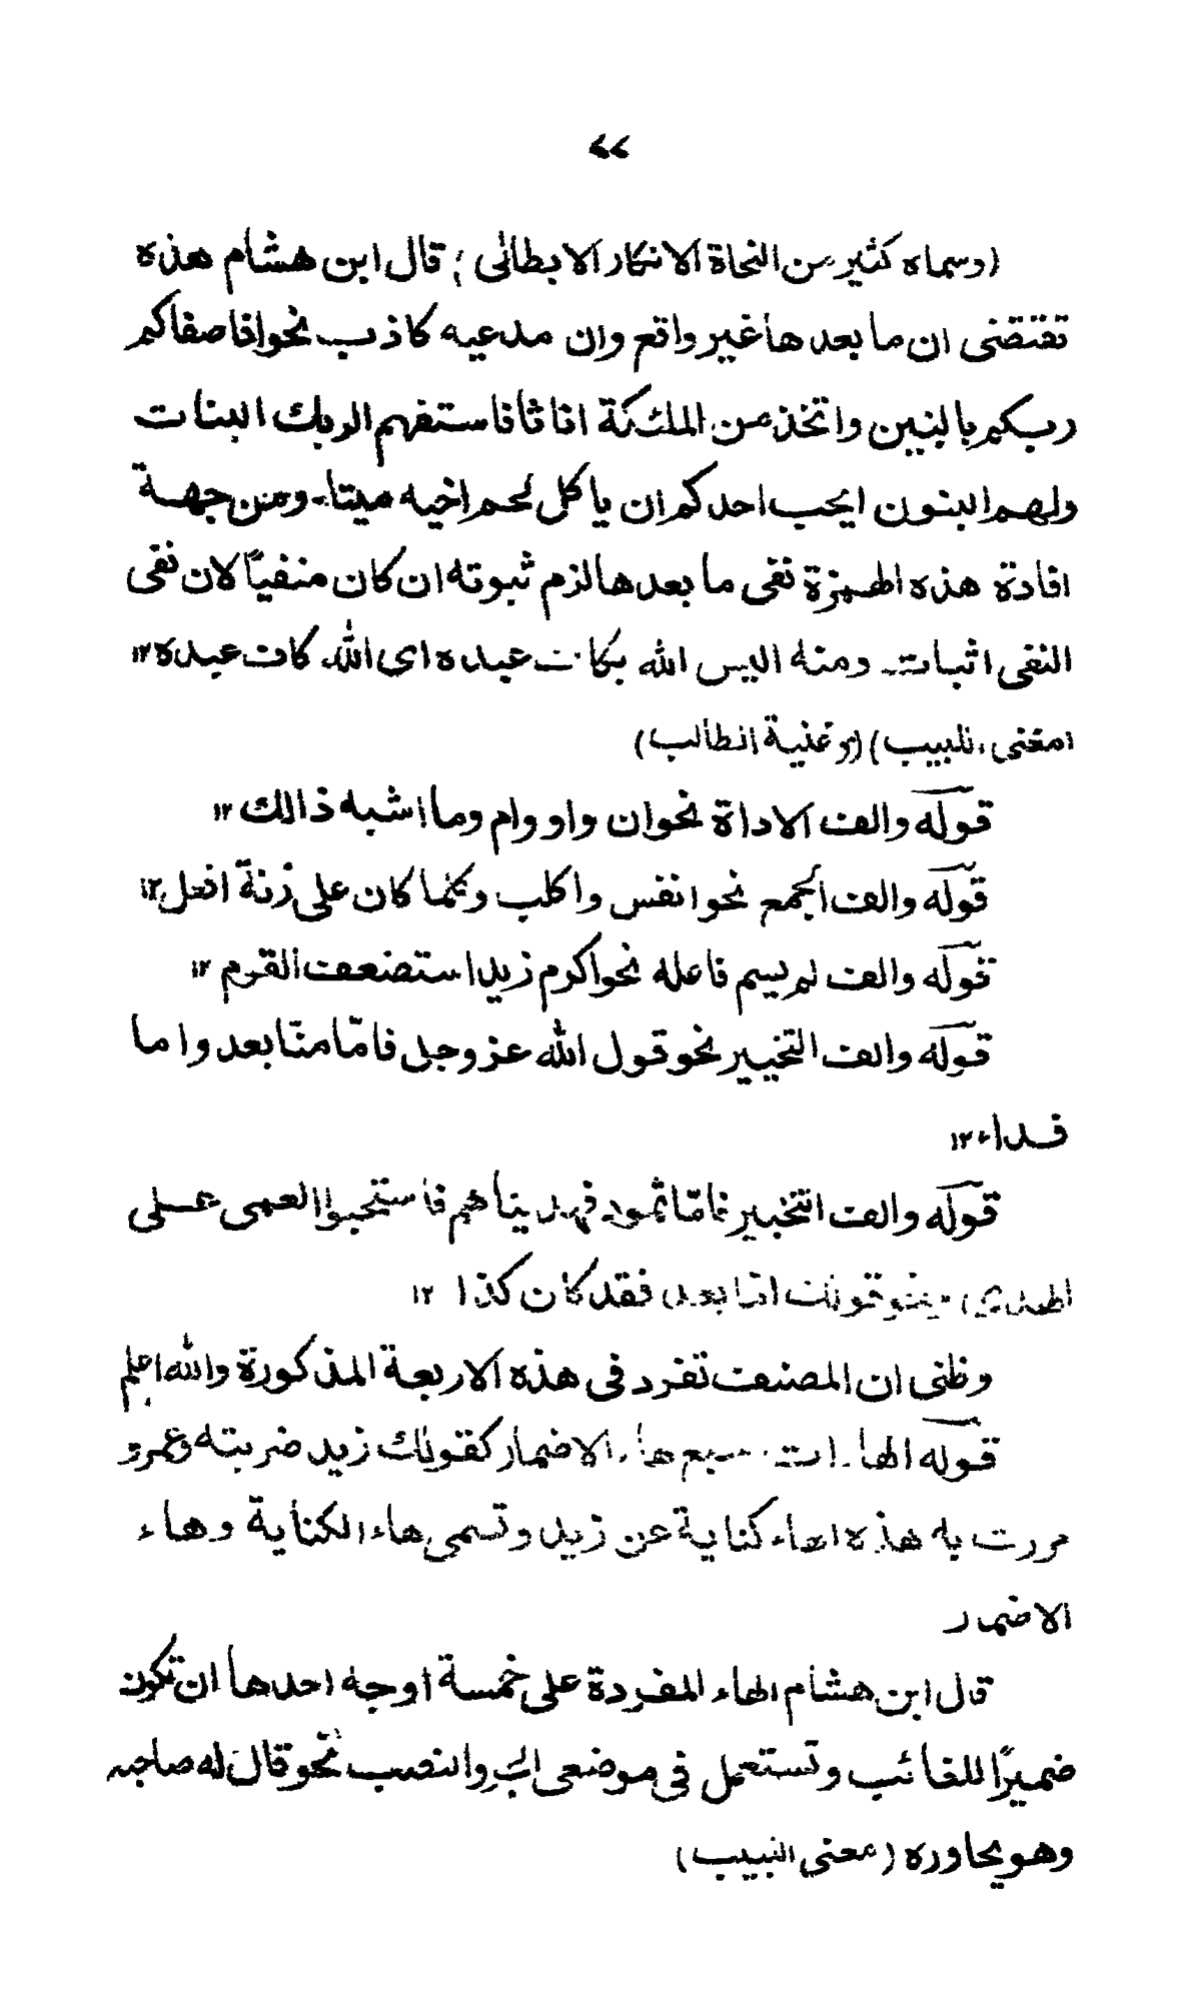 (وسماه كثير من النحاة الانكار الابطالى) قال ابن هشام هذه
تقتضى ان ما بعدها غير واقع وان مدعيه كاذب نحو افاصفاكم
ربكم بالبنين واتخذ من الملئكة اناثا فاستفتهم الربك البنات
ولهم البنون ايحب احدكم ان ياكل لحم اخيه ميتا۔ ومن جهة
افادة هذه الهمزة نفى ما بعدها لزم ثبوته ان كان منفيًا لان نفى
النفى اثبات۔ ومنه اليس الله بكاف عبده اى الله كاف عبده ١٢
(مغنى اللبيب) (و غنية الطالب)
قوله والف الاداة نحو ان واو وام وما اشبه ذالك ١٢
قوله والف الجمع نحو انفس واكلب وكلما كان على زنة افعل ١٢
قوله والف لم يسم فاعله نحو اكرم زيد استضعف القوم ١٢
قوله والف التخيير نحو قول الله عز وجل فامّا منّا بعد واما
فداء ١٢
قوله والف التخبير فامّا ثمود فهديناهم فاستحبوا العمى على
الهدى ونحو قولك امّا بعد فقد كان كذا ١٢
وظنى ان المصنف تفرد فى هذه الاربعة المذكورة والله اعلم
قوله الهاءات سبع هاء الاضمار كقولك زيد ضربته وعمرو
مررت به هذه الهاء كناية عن زيد وتسمى هاء الكناية وهاء
الاضمار
قال ابن هشام الهاء المفردة على خمسة اوجه احدها ان تكون
ضميرًا للغائب وتستعمل فى موضعى الجر والنصب نحو قال له صاحبه
وهو يحاوره (مغنى اللبيب)